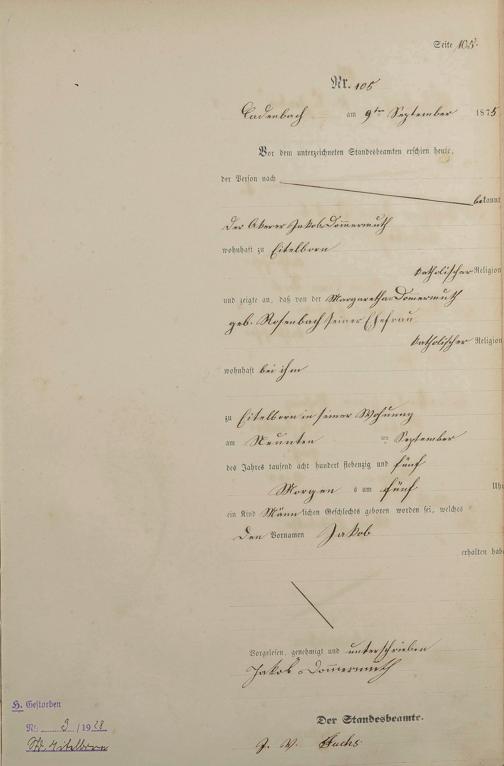 Seite 105.
Nr. 105
Cadenbach am 9ten September 1875
Vor dem unterzeichneten Standesbeamten erschien heute,
der Person nach
bekannt
der Akerer Jakob Dommermuth
wohnhaft zu Eitelborn
katholischer Religion
und zeigte an, daß von der Margaretha Domermuth
geb. Rosenbach seiner Ehefrau
katholischer Religion
wohnhaft bei ihm
zu Eitelborn in seiner Wohnung
am Neunten September
des Jahres tausend acht hundert siebenzig und fünf
Morgens um fünf Uhr
ein Kind Männlichen Geschlechts geboren worden sei, welches
den Vornamen Jakob
erhalten habe
Vorgelesen, genehmigt und unterschrieben
Jakob Dommermuth
Der Standesbeamte.
J. V. Fuchs
H. Gestorben
Nr. 3 /1928
Eitelborn